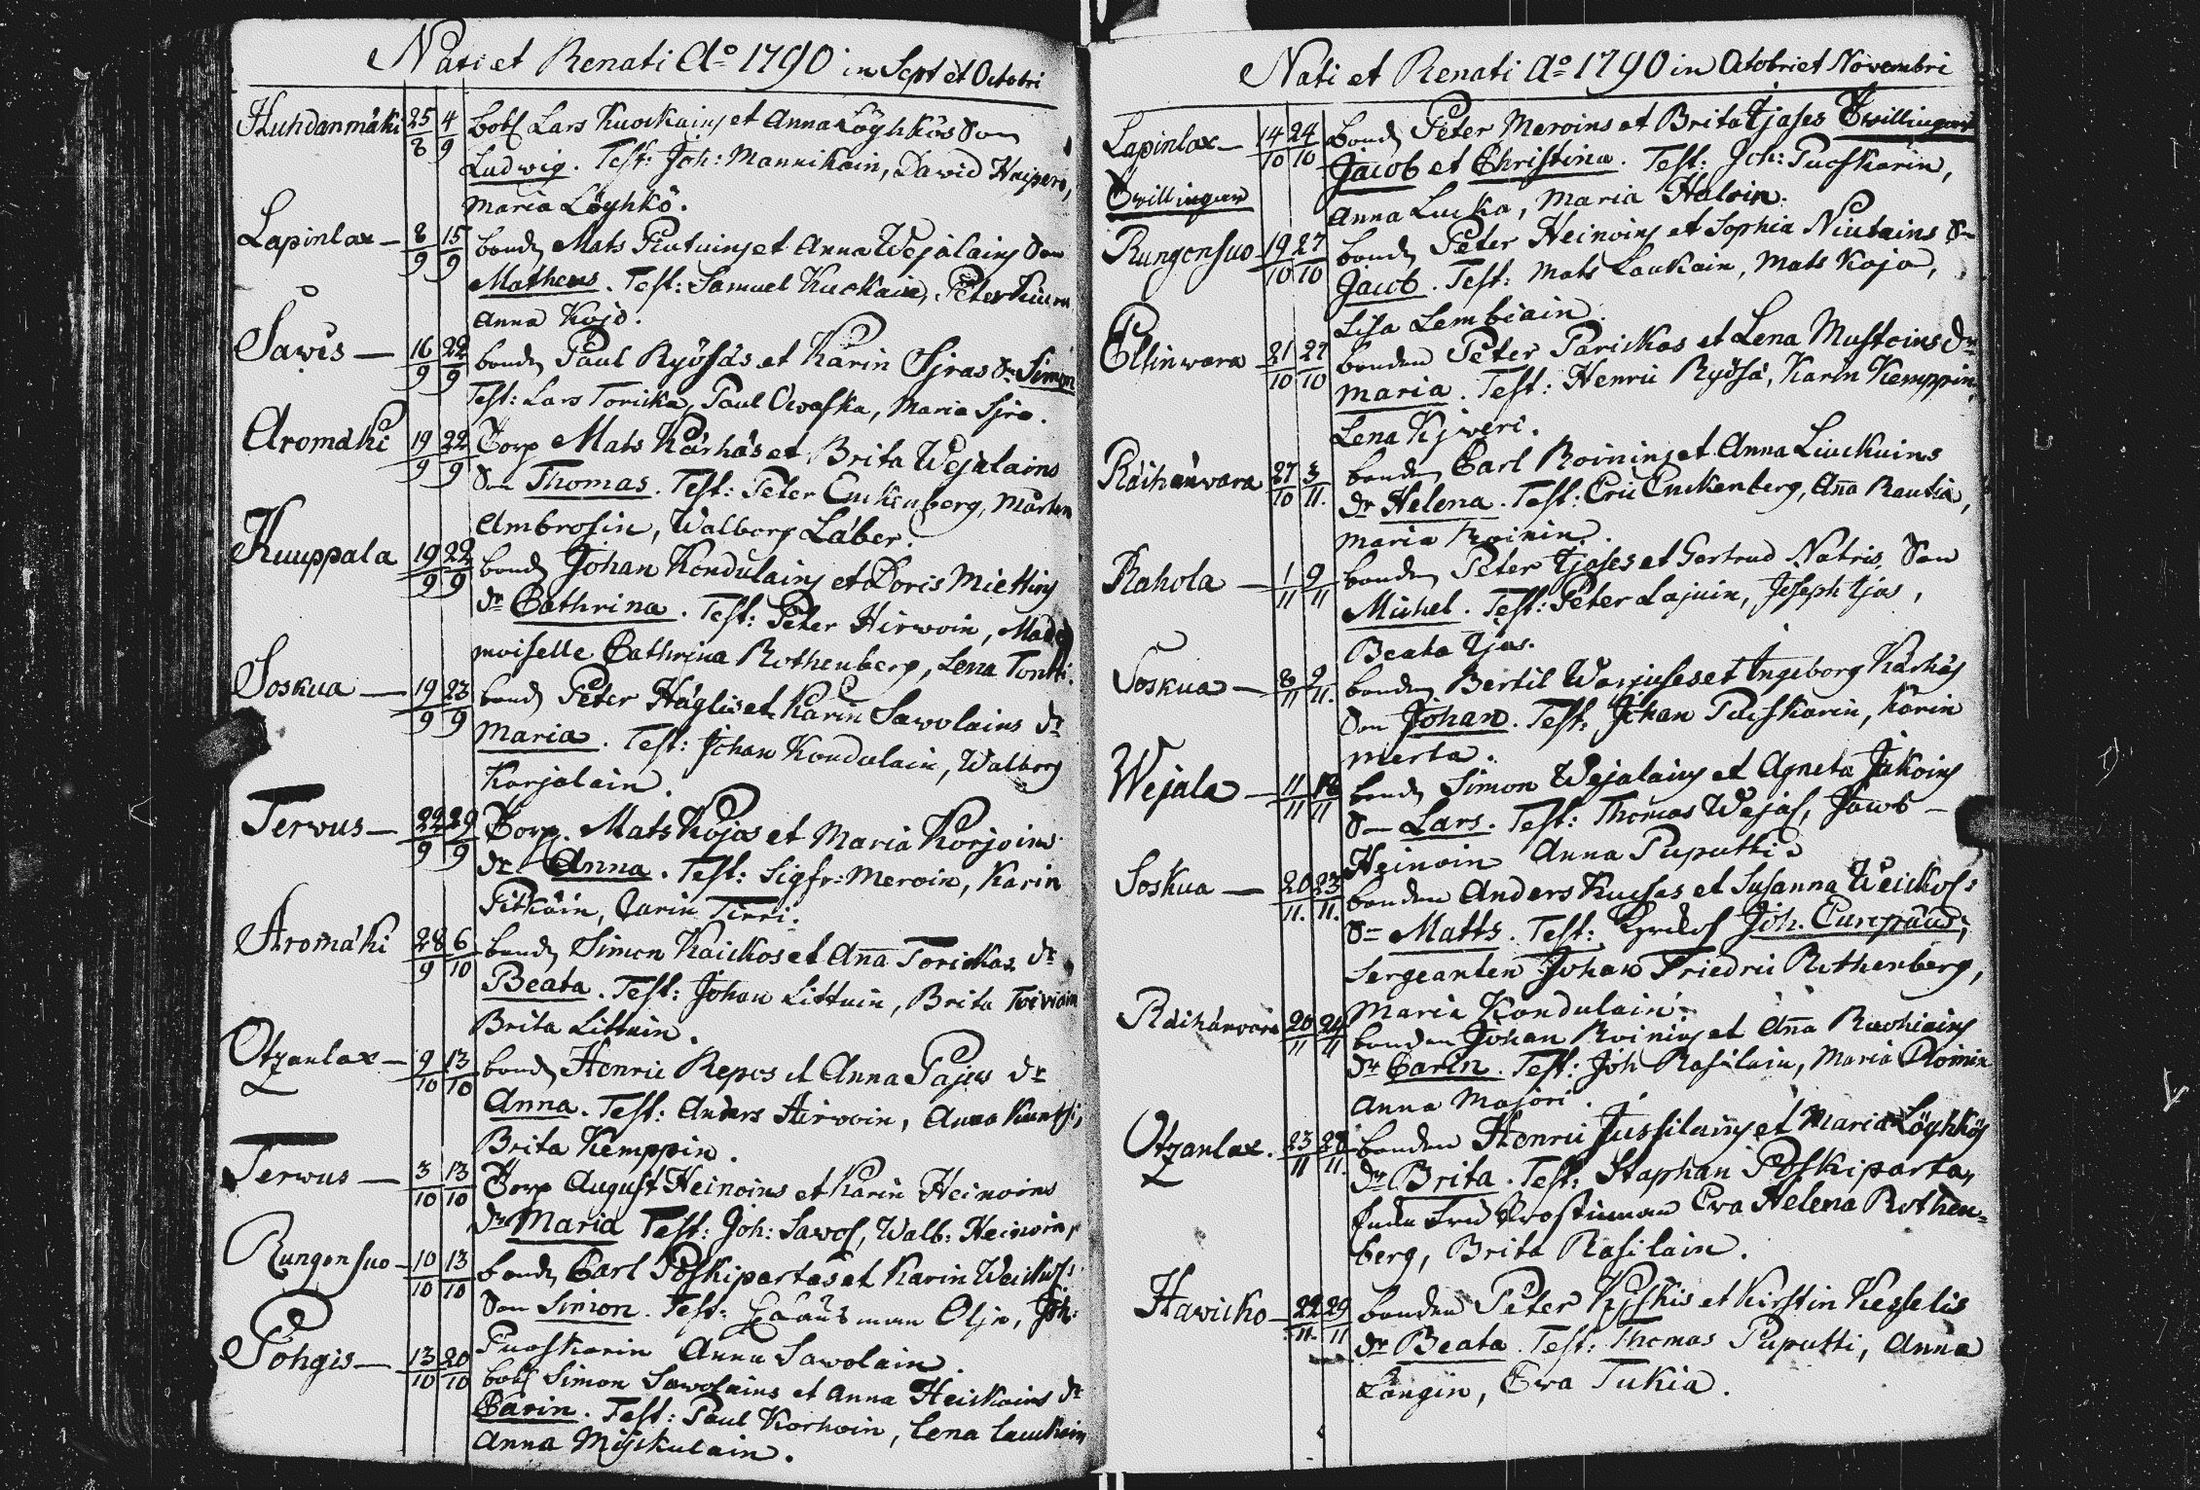 Nati et Renati Aº 1790 in Sept et Octobri
Huhdanmäki 25/8 4/9 bots Lars Kuockains et Anna Löyhkös Son
Ludwig. Test: Joh: Mannikain, David
Maria Löyhkö.
Lapinlax 8/9 15/9 bonden Mats et Anna Wejalains Son
Matheus. Test: Samuel Kuokain, Peter
Anna Kojo.
Sawis 16/9 22/9 bonden Paul Ryösäs et Karin Sjras Sn Simon
Test: Lars Toricka, Paul Owaska, Maria Sjra.
Aromäki 19/9 22/9 Torp Mats Kärhäs et Brita Wejalains
Son Thomas. Test: Peter Enckenberg, Mårten
Ambrosin, Walborg Läber.
Kuuppala 19/9 22/9 bonden Johan Kondulains et Doris Miettins
Dr Cathrina. Test: Peter Hirwoin, Made
moiselle Cathrina Rothenberg, Lena Tontti.
Soskua 19/9 23/9 bonden Peter Häglis et Karin Sawolains Dr
Maria. Test: Johan Kondulain, Walborg
Karjalain.
Terwus 22/9 29/9 Torp. Mats Kojos et Maria Korjoins
Dr Anna. Test: Sigfr: Meroin, Karin
Pitkäin, Carin Tirri.
Aromäki 28/9 6/10 bonden Simon Kaickos et Aña Torickas Dr
Beata. Test: Johan Littuin, Brita Toiviain
Brita Littuin.
Otzanlax 9/10 13/10 bonden Henric Repos et Anna Pajus Dr
Anna. Test: Anders Hirwoin, Anna Kuntsi,
Brita Kemppin.
Terwus 3/10 13/10 Torp August Heinoins et Karin Heinoins
Dr Maria Test: Joh: Sawos, Walb: Heinoin,
Rungonsuo 10/10 13/10 bonden Carl Poskipartas et Karin Weickos:
Son Simon. Test: man Olje, Joh:
Puoskarin Anna Sawolain.
Pohgis 13/10 20/10 bots Simon Sawolains et Anna Heickains Dr
Carin. Test: Paul Korhoin, Lena Lauckain
Anna Myckulain.
Nati et Renati Aº 1790 in Octobri et Novembri
Lapinlax 14/10 24/10 bonden Peter Meroins et Brita Tjases Twillingar
Twillingar Jacob et Christina. Test: Joh: Puoskarin,
Anna Lucka, Maria Haloin.
Rungonsuo 19/10 27/10 bonden Peter Heinoins et Sophia Niutains Sn
Jacob. Test: Mats Laukain, Mats Kojo,
Lisa Lembiain.
Ellinwara 21/10 27/10 bonden Peter Parickas et Lena Mustoins Dr
Maria. Test: Henric Ryösä, Karin Kemppin,
Lena Kjweri.
Räihänwara 27/10 3/11. bonden Carl Roinins et Anna Liuckuins
Dr Helena. Test: Eric Enckenberg, Aña Rautia,
Maria Roinin.
Rahola 1/11 9/11 bonden Peter Tjases et Gertrud Natris Son
Michel. Test: Peter Lajuin, Joseph Tjas,
Beata Tjas.
Soskua 8/11 9/11. bonden Bertil Warjuses et Ingeborg Kärhäs
Son Johan. Test: Johan Puoskarin, Karin
Merta.
Wejala 11/11 bonden Simon Wejalains et Agneta Jakoins
Sn Lars. Test: Thomas Wejas, Jacob
Heinoin Anna Puputti
Soskua 20/11. 23/11. bonden Anders Kuosas et Susanna Weickos:
Sn Matts. Test: Joh. Europäus,
Sergeanten Johan Friedric Rothenberg,
Maria Kondulain.
Räihänwara 20/11 24/11 bonden Johan Roinins et Aña Ruohiains
Dr Carin. Test: Joh Rasilain, Maria Roinin
Anna Majori.
Otzanlax. 23/11 28/11. bonden Henric Jussilains et Maria Löyhkös
Dr Brita. Test: Staphan Poskiparta,
Prostinnan Eva Helena Rothen=
berg, Brita Rasilain.
Hawicko 22/11. 29/11 bonden Peter Kyskis et Kirstin Kesselis
Dr Beata. Test: Thomas Puputti, Anna
Längin, Ewa Tukia.